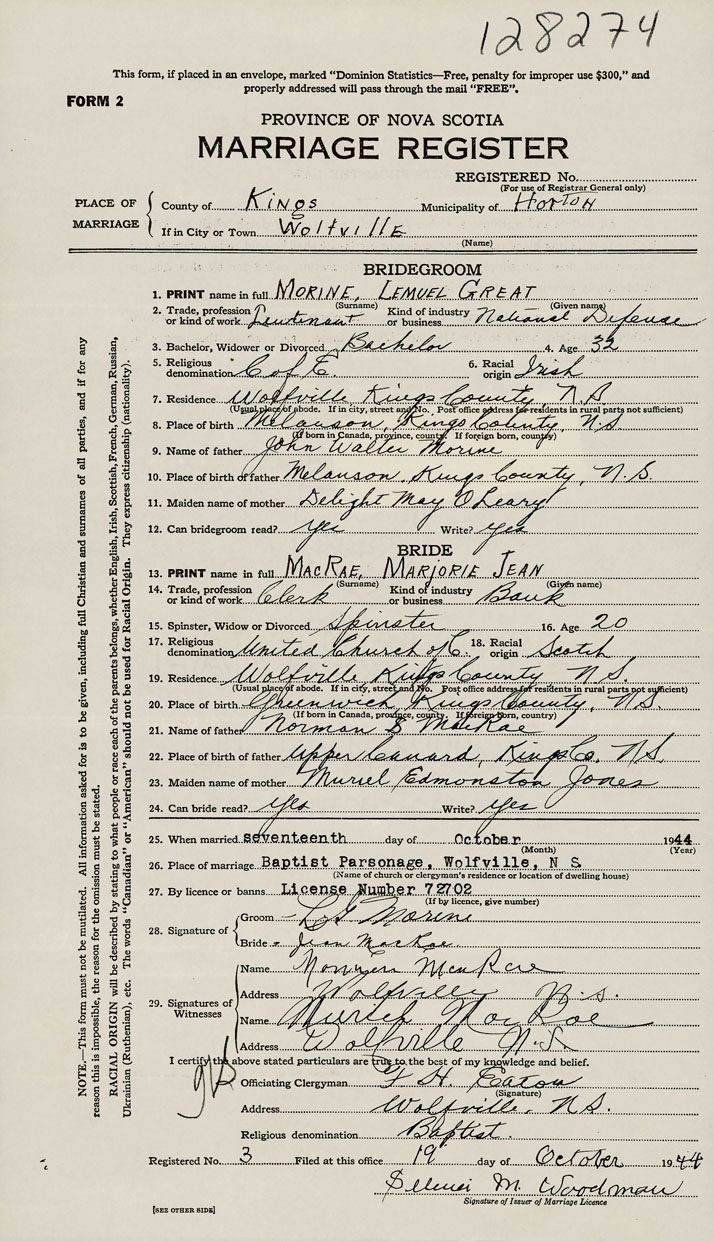 128274
This form, if placed in an envelope, marked "Dominion Statistics—Free, penalty for improper use $300," and
properly addressed will pass through the mail "FREE".
FORM 2
PROVINCE OF NOVA SCOTIA
MARRIAGE REGISTER
REGISTERED No.
(For use of Registrar General only)
PLACE OF MARRIAGE
County of Kings Municipality of Horton
If in City or Town Wolfville
(Name)
BRIDEGROOM
1. PRINT name in full MORINE, LEMUEL GREAT
(Surname) (Given name)
2. Trade, profession or kind of work Lieutenant Kind of industry or business National Defense
3. Bachelor, Widower or Divorced Bachelor 4. Age 32
5. Religious denomination C of E. 6. Racial origin Irish
7. Residence Wolfville, Kings County, N.S.
(Usual place of abode. If in city, street and No. Post office address for residents in rural parts not sufficient)
8. Place of birth Melanson, Kings County, N.S
(If born in Canada, province, county. If foreign born, country)
9. Name of father John Walter Morine
10. Place of birth of father Melanson, Kings County, N.S.
11. Maiden name of mother Delight May O'Leary
12. Can bridegroom read? yes Write? yes
BRIDE
13. PRINT name in full MACRAE, MARJORIE JEAN
(Surname) (Given name)
14. Trade, profession or kind of work Clerk Kind of industry or business Bank
15. Spinster, Widow or Divorced Spinster 16. Age 20
17. Religious denomination United Church of C. 18. Racial origin Scotch
19. Residence Wolfville, Kings County N.S.
(Usual place of abode. If in city, street and No. Post office address for residents in rural parts not sufficient)
20. Place of birth Greenwich, Kings County, N.S.
(If born in Canada, province, county. If foreign born, country)
21. Name of father Norman S MacRae
22. Place of birth of father Upper Canard, Kings Co, N.S.
23. Maiden name of mother Muriel Edmonston Jones
24. Can bride read? yes Write? yes
25. When married seventeenth day of October 1944
(Month) (Year)
26. Place of marriage Baptist Parsonage, Wolfville, N S
(Name of church or clergyman's residence or location of dwelling house)
27. By licence or banns License Number 72702
(If by licence, give number)
28. Signature of
Groom L G Morine
Bride Jean MacRae
29. Signatures of Witnesses
Name Norman MacRae
Address Wolfville N.S.
Name Muriel MacRae
Address Wolfville N.S
I certify the above stated particulars are true to the best of my knowledge and belief.
Officiating Clergyman F. H. Eaton
(Signature)
Address Wolfville, N.S.
Religious denomination Baptist.
Registered No. 3 Filed at this office 19 day of October 1944
M. Woodman
Signature of Issuer of Marriage Licence
[SEE OTHER SIDE]
NOTE.—This form must not be mutilated. All information asked for is to be given, including full Christian and surnames of all parties, and if for any
reason this is impossible, the reason for the omission must be stated.
RACIAL ORIGIN will be described by stating to what people or race each of the parents belongs, whether English, Irish, Scottish, French, German, Russian,
Ukrainian (Ruthenian), etc. The words "Canadian" or "American" should not be used for Racial Origin. They express citizenship (nationality).